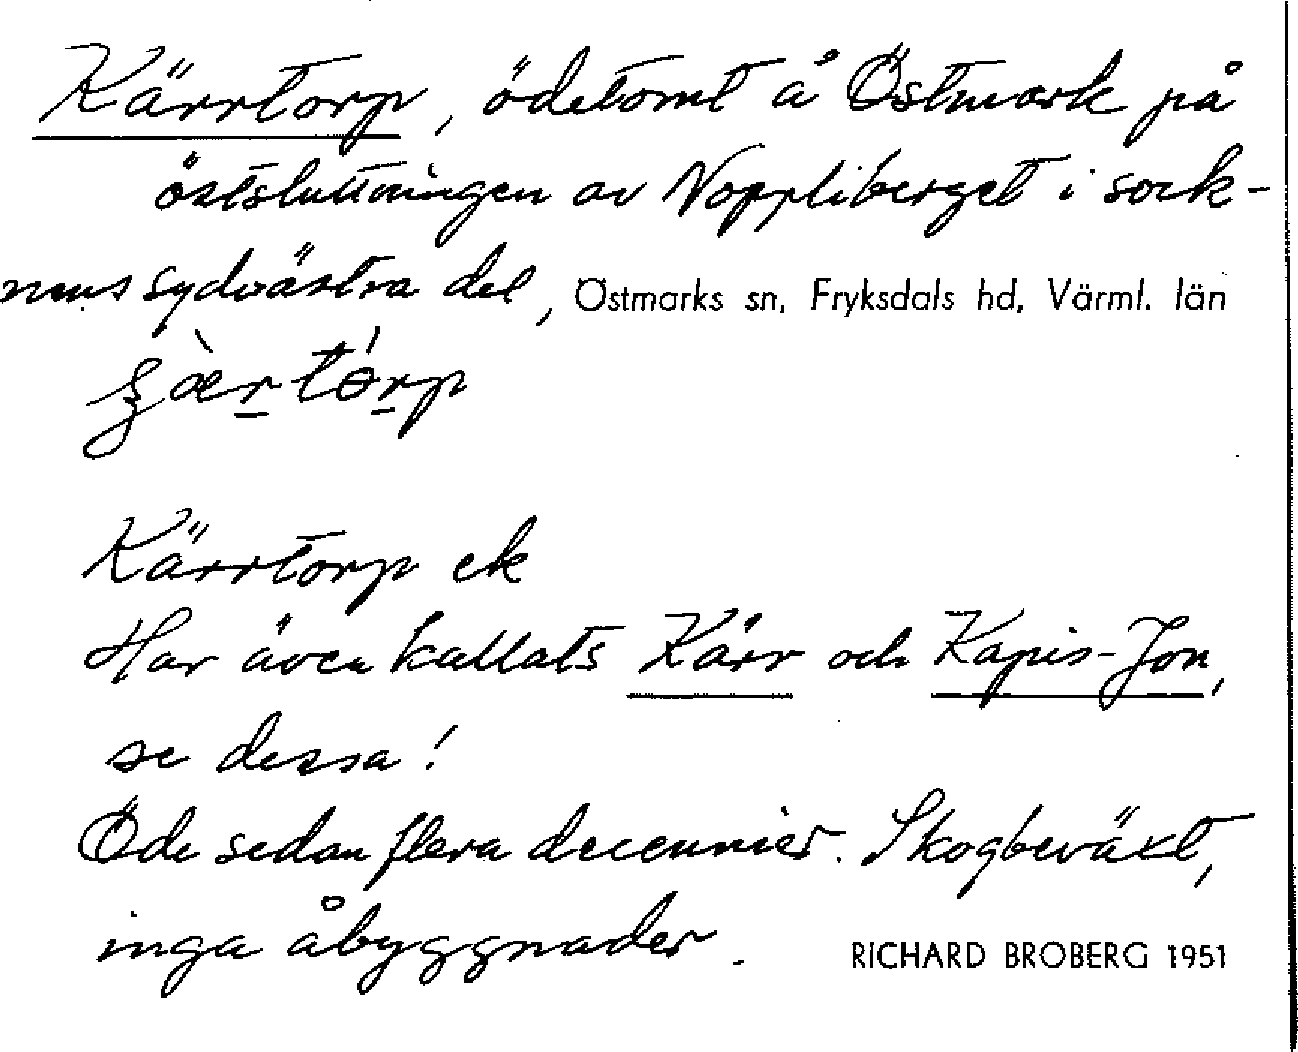 Kärrtorp, ödetomt å Östmark på
östsluttningen av Noppliberget i sock-
nens sydvästra del, Östmarks sn, Fryksdals hd, Värml. län
Kärrtorp ek
Har även kallats Kärr och Kapis-Jon,
se dessa!
Öde sedan flera decennier. Skogbeväxt,
inga åbyggnader.
RICHARD BROBERG 1951